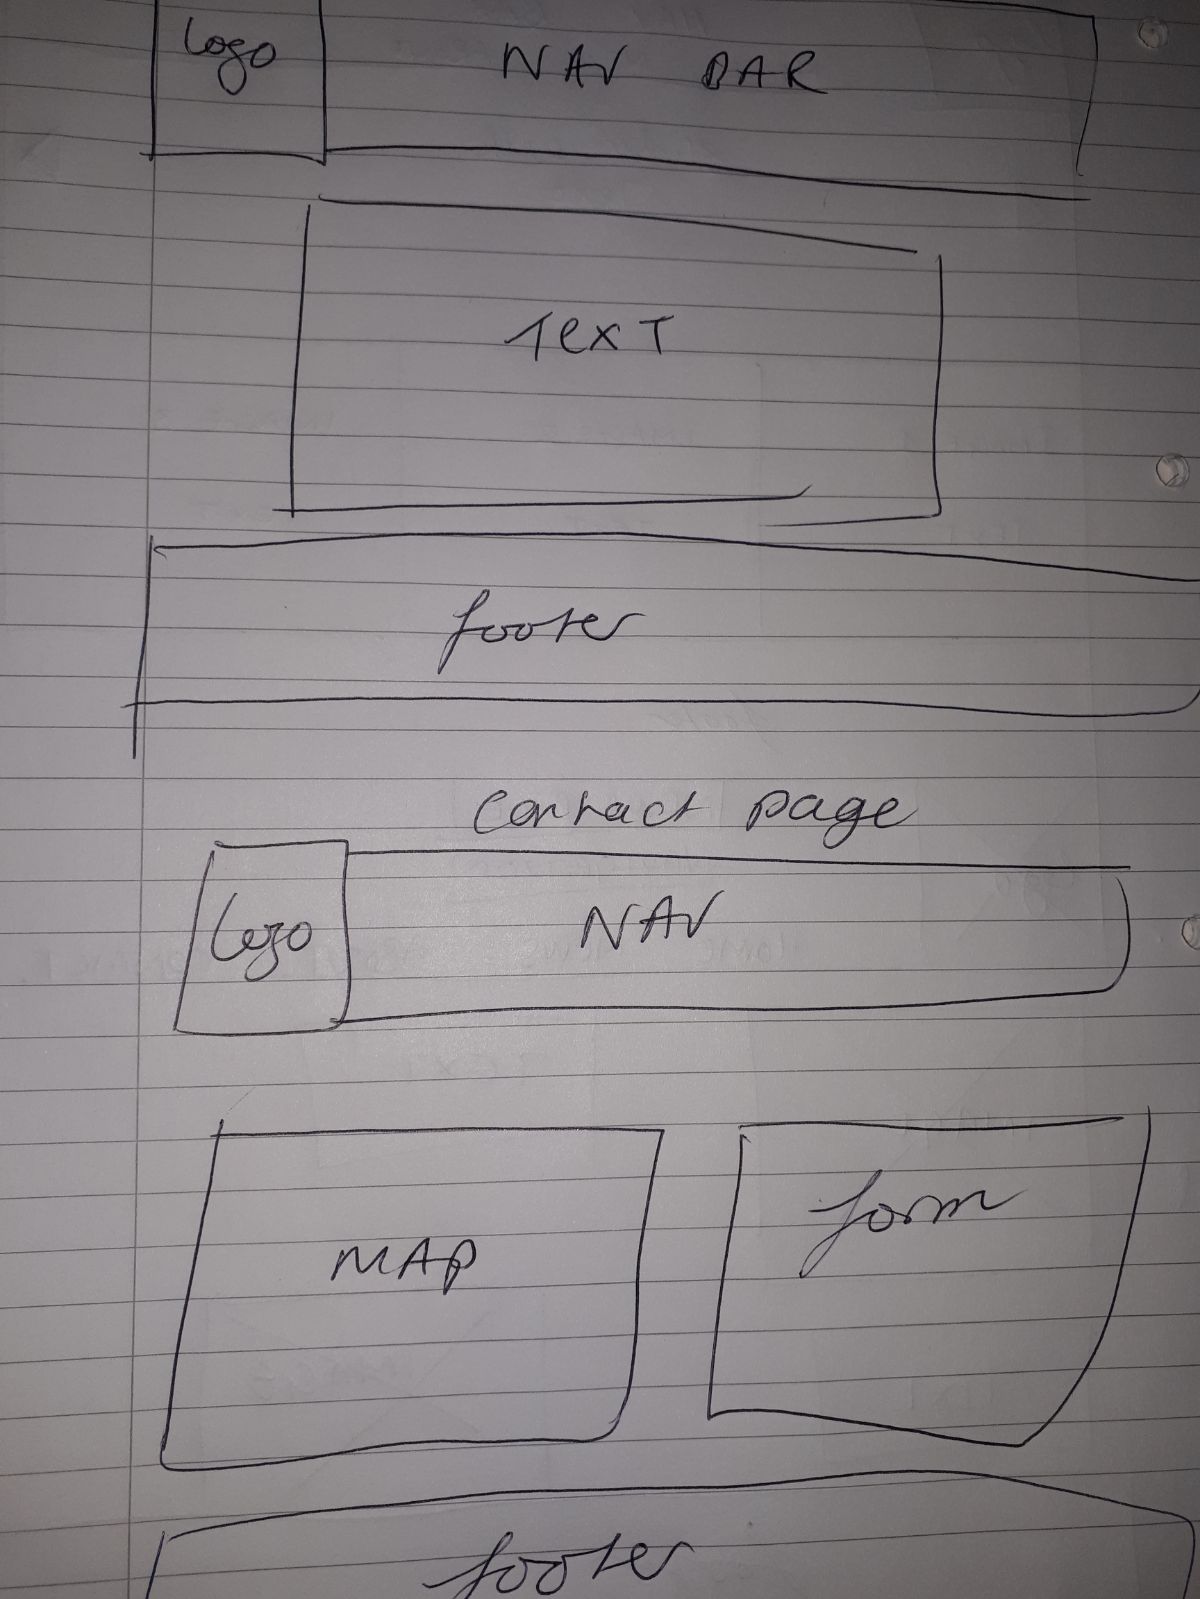 Logo NAV BAR
Text
footer
Contact page
Logo NAV
MAP form
footer